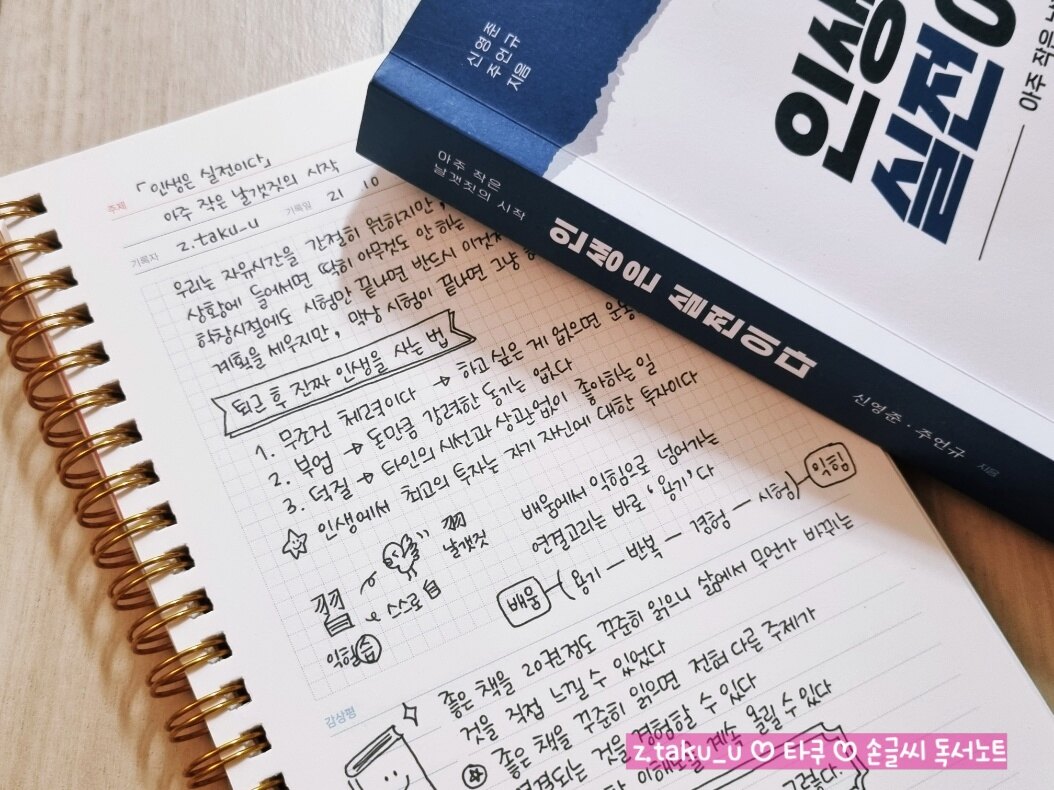 신영준
주언규 지음
인생
실전이
아주 작은
아주 작은
날갯짓의 시작
인생은 실전이다
신영준 · 주언규 지음
주제
「인생은 실전이다」
아주 작은 날갯짓의 시작
기록자 z.taku_u 기록일 21 10
우리는 자유시간을 간절히 원하지만,
상황에 들어서면 딱히 아무것도 안 하는
학창시절에도 시험만 끝나면 반드시 이것저
계획을 세우지만, 막상 시험이 끝나면 그냥
퇴근 후 진짜 인생을 사는 법
1. 무조건 체력이다 → 하고 싶은 게 없으면 운동
2. 부업 → 돈만큼 강력한 동기는 없다
3. 덕질 → 타인의 시선과 상관없이 좋아하는 일
☆ 인생에서 최고의 투자는 자기 자신에 대한 투자이다
羽 날갯짓
스스로 自
익힐 習
배움에서 익힘으로 넘어가는
연결고리는 바로 '용기'다
배움 (용기 — 반복 — 경험 — 시험) 익힘
감상평
좋은 책을 20권정도 꾸준히 읽으니 삶에서 무언가 바뀌는
것을 직접 느낄 수 있었다
좋은 책을 꾸준히 읽으면 전혀 다른 주제가
연결되는 것을 경험할 수 있다
이해도를 계속 올릴 수 있다
그렇다.
z.taku_u ♡ 타쿠 ♡ 손글씨 독서노트